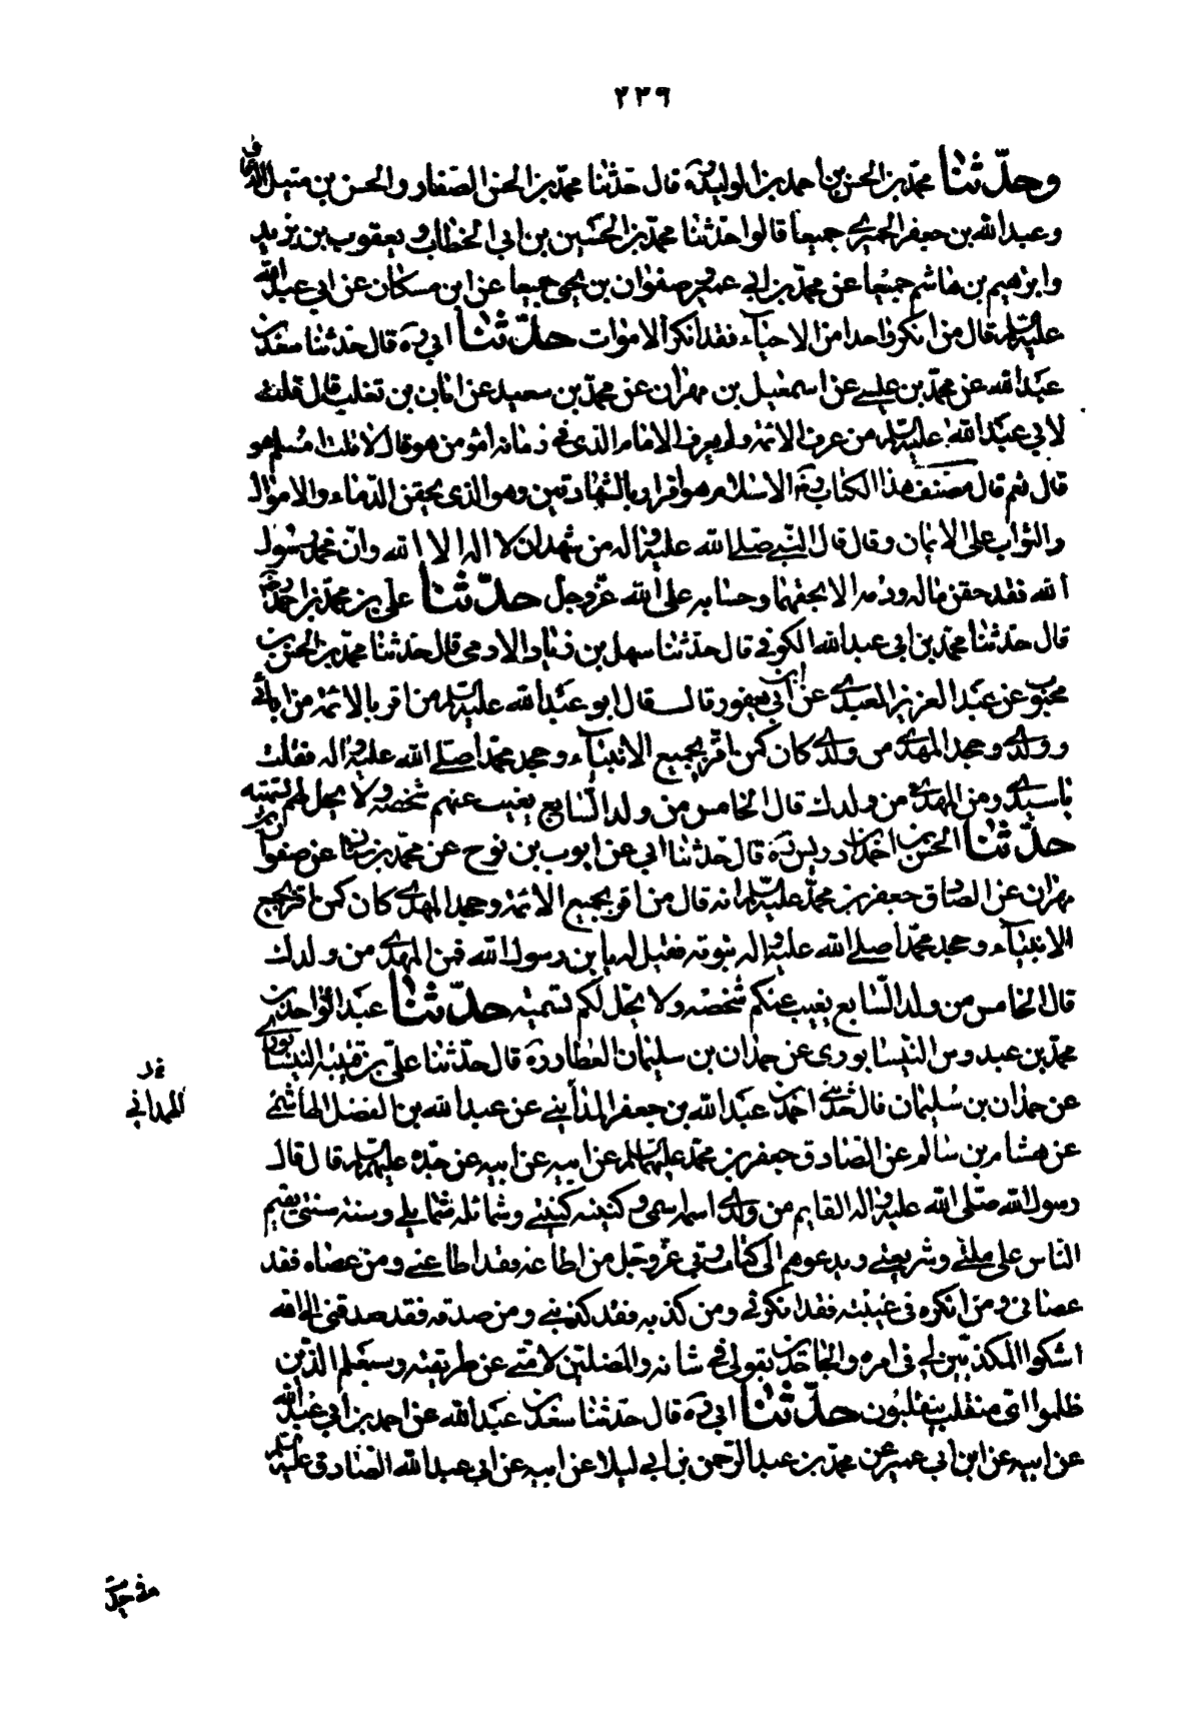 ٢٢٦
وحدّثنا محمّد بن الحسن بن احمد بن الوليد ره قال حدّثنا محمّد بن الحسن الصّفار والحسن بن متيل الدقاق
وعبد الله بن جعفر الحميرى جميعا قالوا حدّثنا محمّد بن الحسين بن ابى الخطاب ويعقوب بن يزيد
وابرهيم بن هاشم جميعا عن محمّد بن ابى عمير وصفوان بن يحيى جميعا عن ابن مسكان عن ابى عبد الله
عليه السلم قال من انكر واحدا من الاحياء فقد انكر الاموات حدّثنا ابى ره قال حدّثنا سعد بن
عبد الله عن محمّد بن عيسى عن اسمعيل بن مهران عن محمّد بن سعيد عن ابان بن تغلب قال قلت
لابى عبد الله عليه السلم من عرف الائمة ولم يعرف الامام الذى فى زمانه امؤمن هو قال لا قلت امسلم هو
قال نعم قال مصنف هذا الكتاب ره الاسلام هو اقرار بالشهادتين وهو الذى يحقن الدماء والاموال
والثواب على الايمان وقال قال النّبى صلى الله عليه واله من شهد ان لا اله الا الله وان محمدا رسول
الله فقد حقن ماله ودمه الا بحقهما وحسابه على الله عزّ وجل حدّثنا على بن محمّد بن احمد ره
قال حدّثنا محمّد بن ابى عبد الله الكوفى قال حدّثنا سهل بن زياد الادمى قال حدّثنا محمّد بن الحسن بن
محبوب عن عبد العزيز العبدى عن ابن ابى يعفور قال قال ابو عبد الله عليه السلم من اقر بالائمة من ابائى
وولدى وجحد المهدى من ولدى كان كمن اقرّ بجميع الانبياء وجحد محمّدا صلى الله عليه واله فقلت
يا سيدى ومن المهدى من ولدك قال الخامس من ولد السّابع يغيب عنهم شخصه ولا يحل لهم تسميته
حدّثنا الحسن بن احمد بن ادريس ره قال حدّثنا ابى عن ايوب بن نوح عن محمّد بن سنان عن صفوان بن
مهران عن الصّادق جعفر بن محمّد عليه السلم انه قال من اقر بجميع الائمة وجحد المهدى كان كمن اقر بجميع
الانبياء وجحد محمّدا صلى الله عليه واله نبوته فقيل له يا بن رسول الله فمن المهدى من ولدك
قال الخامس من ولد السّابع يغيب عنكم شخصه ولا يحل لكم تسميته حدّثنا عبد الواحد بن
محمّد بن عبدوس النيسابورى عن حمدان بن سليمان العطار ره قال حدّثنا على بن قتيبة النيسابورى
عن حمدان بن سليمان قال حدّثنى احمد بن عبد الله بن جعفر المدايني عن عبد الله بن الفضل الهاشمى
الهمدانى
عن هشام بن سالم عن الصّادق جعفر بن محمّد عليهما السلم عن ابيه عن ابيه عن جدّه عليهم السلم قال قال
رسول الله صلّى الله عليه واله القايم من ولدى اسمه اسمى وكنيته كنيتى وشمائله شمايلى وسنته سنتى يقيم
الناس على ملتى وشريعتى ويدعوهم الى كتاب ربى عزّ وجل من اطاعه فقد اطاعنى ومن عصاه فقد
عصانى ومن انكره فى غيبته فقد انكرنى ومن كذبه فقد كذبنى ومن صدقه فقد صدقنى الى الله
اشكو المكذّبين لى فى امره والجاحدين بقولى فى شانه والمضلّين لامتى عن طريقته وسيعلم الذين
ظلموا اى منقلب ينقلبون حدّثنا ابى ره قال حدّثنا سعد بن عبد الله عن احمد بن ابى عبد الله
عن ابيه عن ابن ابى عمير عن محمّد بن عبد الرّحمن بن ابى ليلا عن ابيه عن ابى عبد الله الصّادق عليه السلم